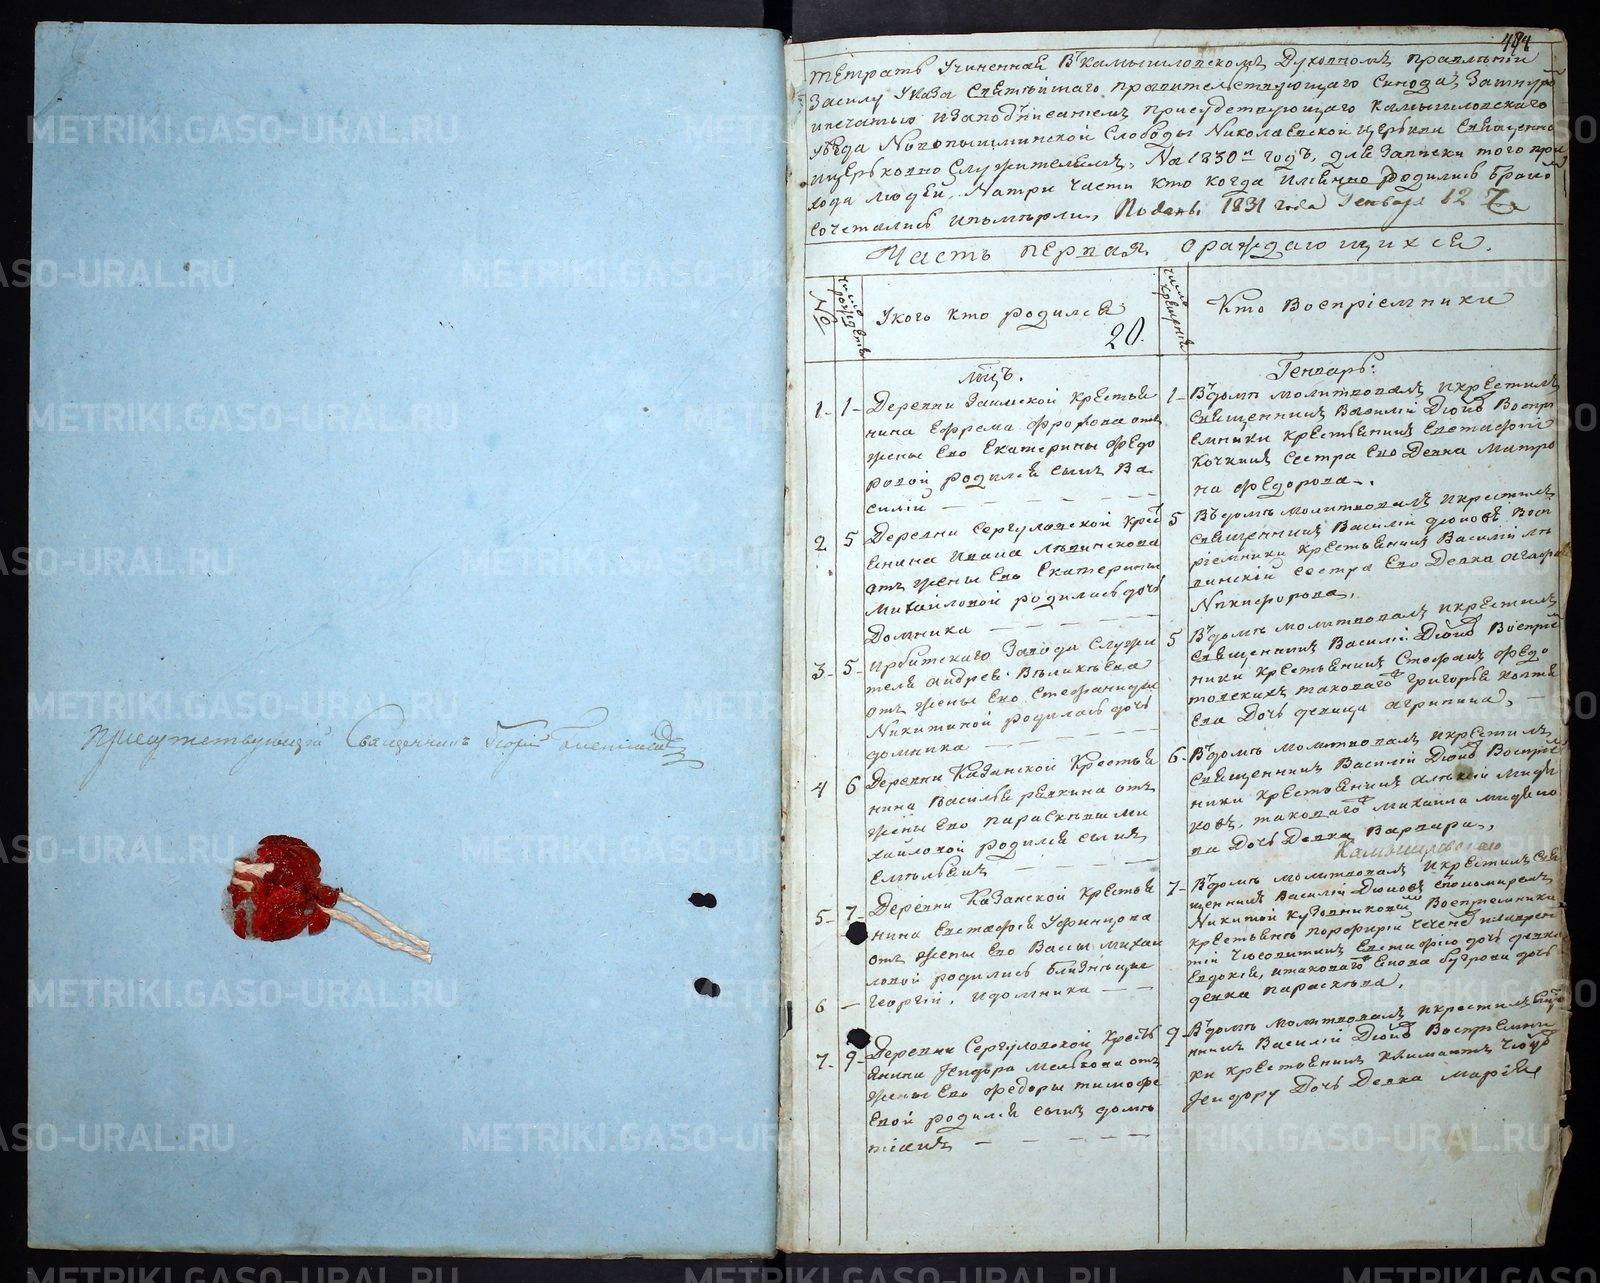 Присутствующий Священникъ
484
Тетрать учиненная въ Камышловскомъ Духовномъ правленіи
Засилу Указа Святѣйшаго правительствующаго Синода, Зашнуро
ипечатью изаподписаніемъ присудствующаго Камышловскаго
уѣзда Новопышминской Слободы Николаевской церкви Священно
ицерьковно Служителямъ, На 1830й годъ, для Записки того при
хода людей, Натри части кто когда имянно родились бракомъ
сочетались ипомѣрли, Подань 1831 года Генваря 12
Часть первая ораждающихся.
№
число рожденія
Укого кто родился
20.
число крещенія
Кто Воспріемники
мѣцъ.
Генварь:
1- 1- Деревни Заимской крестья
нина Ефрема Фролова отъ
жены Его Екатерины Федо
ровой родился сынъ Ва
силій
1- Въдомѣ молитвовалъ икрестилъ
Священникъ Василій Дюковъ Воспрі
емники крестьянинъ Евстафій
Кочкинъ сестра Его Девка Матро
на Федорова.
2 5 Деревни Сергуловской крест
янина Ивана Лѣвинскова
отъ жены Его Екатерины
Михайловой родилась дочь
Домника
5 Въдомѣ молитвовалъ икрестилъ
священникъ Василій Дюковъ Восп
ріемники крестьянинъ Василій Лѣ
винскій сестра Его Девка Агафья
Никифорова,
3- 5- Ирбитскаго Завода Служи
теля Андрея
отъ жены Его Стефаниды
Никитиной родилась дочь
домника
5 Въдомѣ молитвовалъ икрестилъ
священникъ Василій Дюковъ Воспріем
ники крестьянинъ Стефанъ Федо
товскихъ таковаго Григорья Коптя
ева Дочь девица Агрипина,
4 6 Деревни Казанской Крестья
нина Василья Рявкина отъ
жены Его Параскевьи Ми
хайловой родился сынъ
Емельянъ
6- Въдомѣ молитвовалъ икрестилъ
священникъ Василій Дюковъ Воспріем
ники крестьянинъ Алексѣй
ковъ, таковаго Михаила
ва Дочь Девка Варвара,
Камышловскаго
5- 7- Деревни Казанской Крестья
нина Евстафія Уфинцова
отъ жены Его Вассы Михай
ловой родились близнецы
6 - Георгій, Идомника
7- Въдомѣ молитвовалъ икрестилъ Свя
щенникъ Василій Дюковъ спономаремъ
Никитой Кузовниковымъ Воспріемники
крестьяне Порфирій
Евстафію дочь девка
Евдокія, итаковаго Бугрова дочь
девка Параскева.
7- 9- Деревни Сергуловской Кресть
янина Исидора Мелькова отъ
жены Его Федоры Тимофе
евой родился сынъ Домѣ
тіанъ
9- Въдомѣ молитвовалъ икрестилъ Свяще
нникъ Василій Дюковъ Воспріемни
ки крестьянинъ Климантъ
Исидору Дочь Девка Марія
METRIKI.GASO-URAL.RU